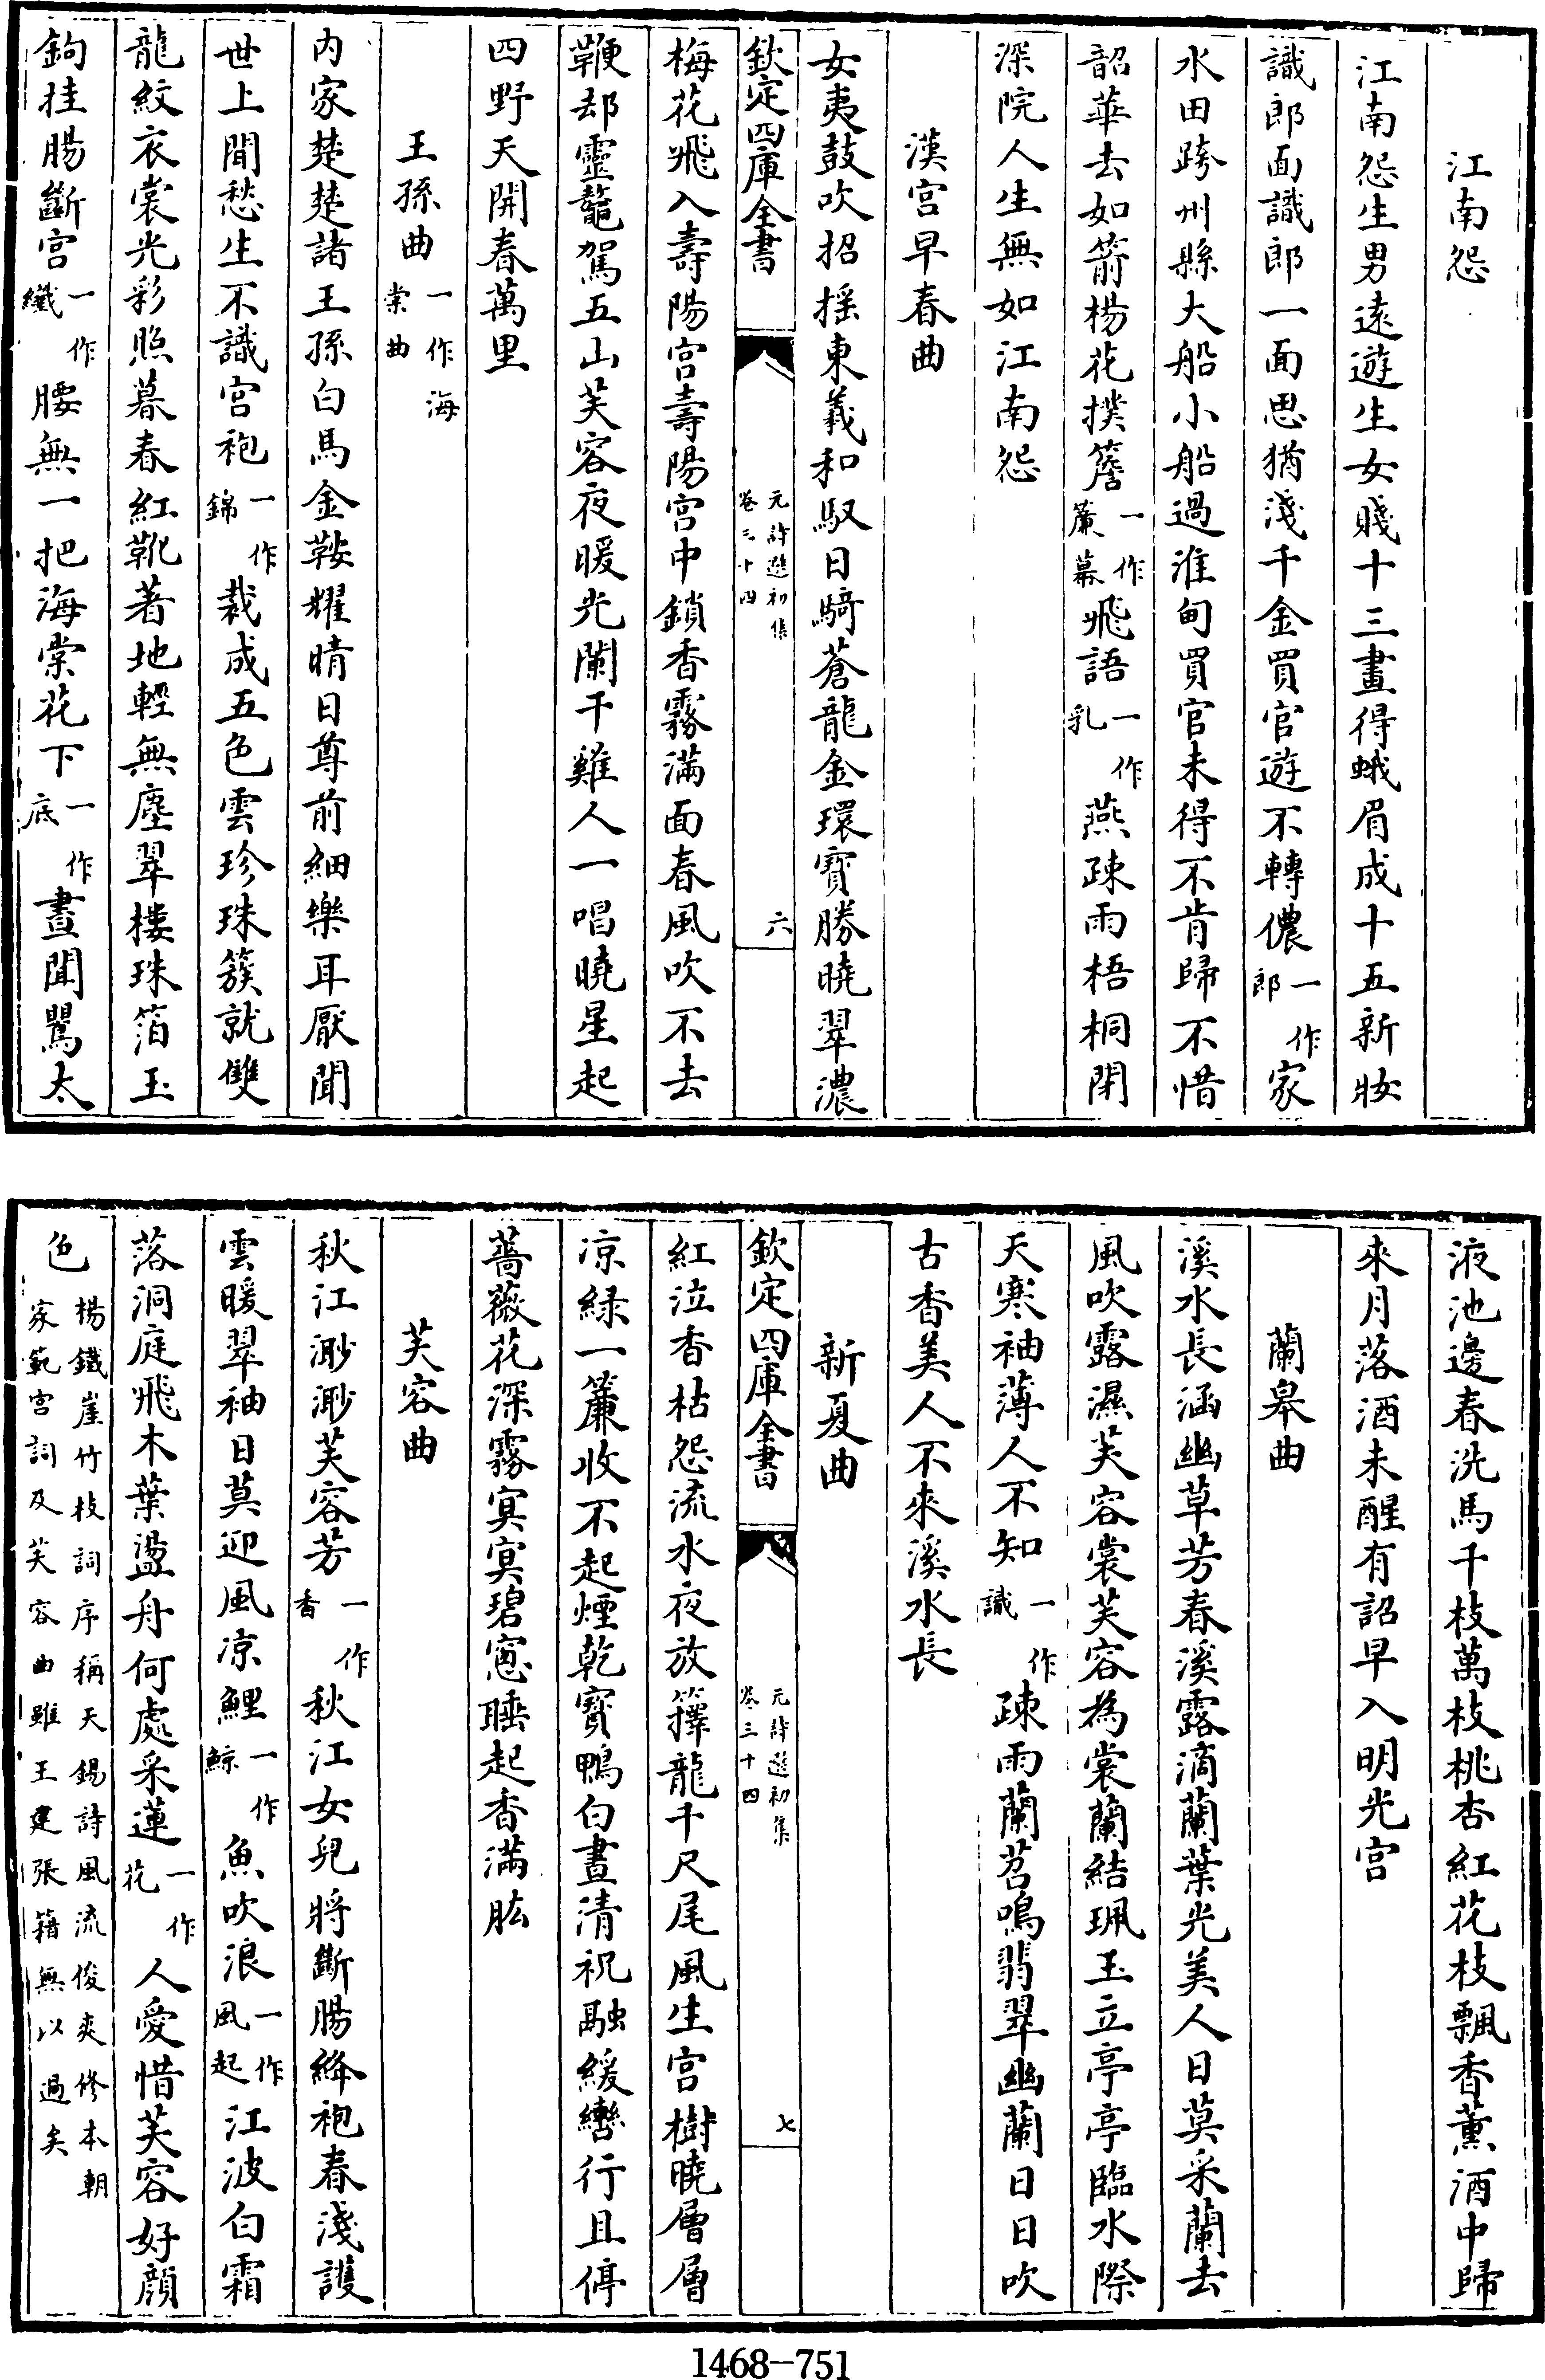 江南怨
江南怨生男遠遊生女賤十三畫得蛾眉成十五新妝
識郎面識郎一面思猶淺千金買官遊不轉儂一作郎家
水田跨州縣大船小船過淮甸買官未得不肯歸不惜
韶華去如箭楊花撲簷一作簾幕飛語一作乳燕疎雨梧桐閉
深院人生無如江南怨
漢宮早春曲
女夷鼓吹招搖東羲和馭日騎蒼龍金環寶勝曉翠濃
欽定四庫全書 元詩選初集 卷三十四 六
梅花飛入壽陽宮壽陽宮中鎖香霧滿面春風吹不去
鞭却靈鼇駕五山芙容夜暖光闌干雞人一唱曉星起
四野天開春萬里
王孫曲一作海棠曲
内家楚楚諸王孫白馬金鞍耀晴日尊前細樂耳厭聞
世上閒愁生不識宮袍一作錦裁成五色雲珍珠簇就雙
龍紋衣裳光彩照暮春紅靴著地輕無塵翠樓珠箔玉
鉤挂腸斷宮一作纖腰無一把海棠花下一作底晝聞鸎太
液池邊春洗馬千枝萬枝桃杏紅花枝飄香薰酒中歸
來月落酒未醒有詔早入明光宮
蘭皋曲
溪水長涵幽草芳春溪露滴蘭葉光美人日莫采蘭去
風吹露濕芙容裳芙容為裳蘭結珮玉立亭亭臨水際
天寒袖薄人不知一作識疎雨蘭苕鳴翡翠幽蘭日日吹
古香美人不來溪水長
新夏曲
欽定四庫全書 元詩選初集 卷三十四 七
紅泣香枯怨流水夜放籜龍千尺尾風生宮樹曉層層
凉綠一簾收不起煙乾寶鴨白晝清祝融緩轡行且停
薔薇花深霧寞寞碧窻睡起香滿肱
芙容曲
秋江渺渺芙容芳一作香秋江女兒將斷腸絳袍春淺護
雲暖翠袖日莫迎風凉鯉一作鯨魚吹浪一作風起江波白霜
落洞庭飛木葉盪舟何處采蓮一作花人愛惜芙容好顔
色楊鐵崖竹枝詞序稱天錫詩風流俊爽修本朝家範宮詞及芙容曲雖王建張籍無以過矣
1468-751